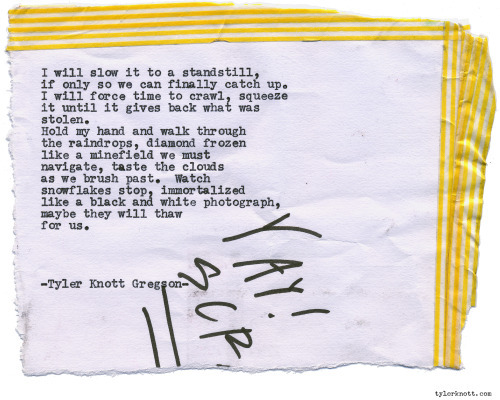 I will slow it to a standstill,
if only so we can finally catch up.
I will force time to crawl, squeeze
it until it gives back what was
stolen.
Hold my hand and walk through
the raindrops, diamond frozen
like a minefield we must
navigate, taste the clouds
as we brush past. Watch
snowflakes stop, immortalized
like a black and white photograph,
maybe they will thaw
for us.
-Tyler Knott Gregson-
YAY!
SCR
tylerknott.com